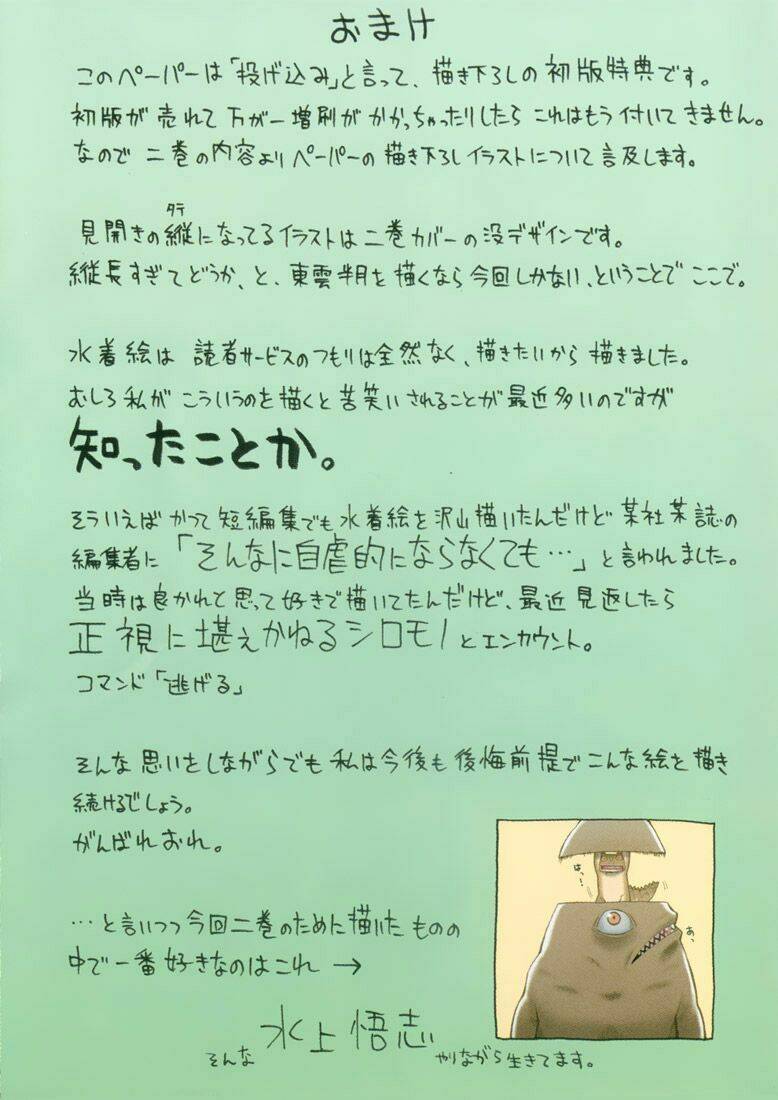 おまけ
このペーパーは「投げ込み」と言って、描き下ろしの初版特典です。
初版が売れて万が一増刷がかかっちゃったりしたらこれはもう付いてきません。
なので二巻の内容よりペーパーの描き下ろしイラストについて言及します。
タテ
見開きの縦になってるイラストは二巻カバーの没デザインです。
縦長すぎてどうか、と、東雲半月を描くなら今回しかない、ということでここで。
水着絵は読者サービスのつもりは全然なく、描きたいから描きました。
むしろ私がこういうのを描くと苦笑いされることが最近多いのですが
知ったことか。
そういえばかつて短編集でも水着絵を沢山描いたんだけど某社某誌の
編集者に「そんなに自虐的にならなくても…」と言われました。
当時は良かれと思って好きで描いてたんだけど、最近見返したら
正視に堪えかねるシロモノとエンカウント。
コマンド「逃げる」
そんな思いをしながらでも私は今後も後悔前提でこんな絵を描き
続けるでしょう。
がんばれおれ。
…と言いつつ今回二巻のために描いたものの
中で一番好きなのはこれ→
は…
あ、
水上悟志
そんな やりながら生きてます。